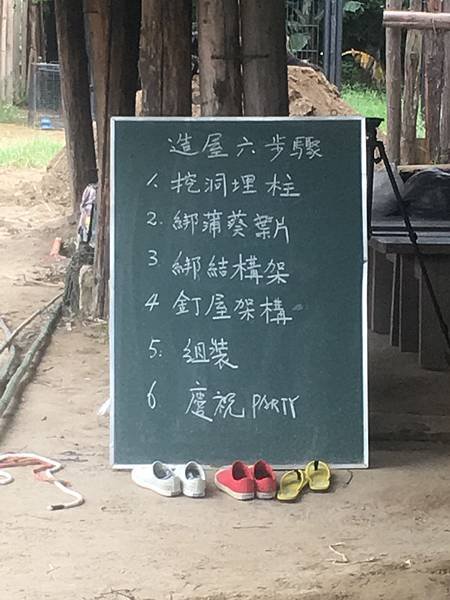 造屋六步驟
1. 挖洞埋柱
2. 綁蒲葵葉片
3 綁結構架
4 釘屋架構
5. 組裝
6 慶祝 PARTY